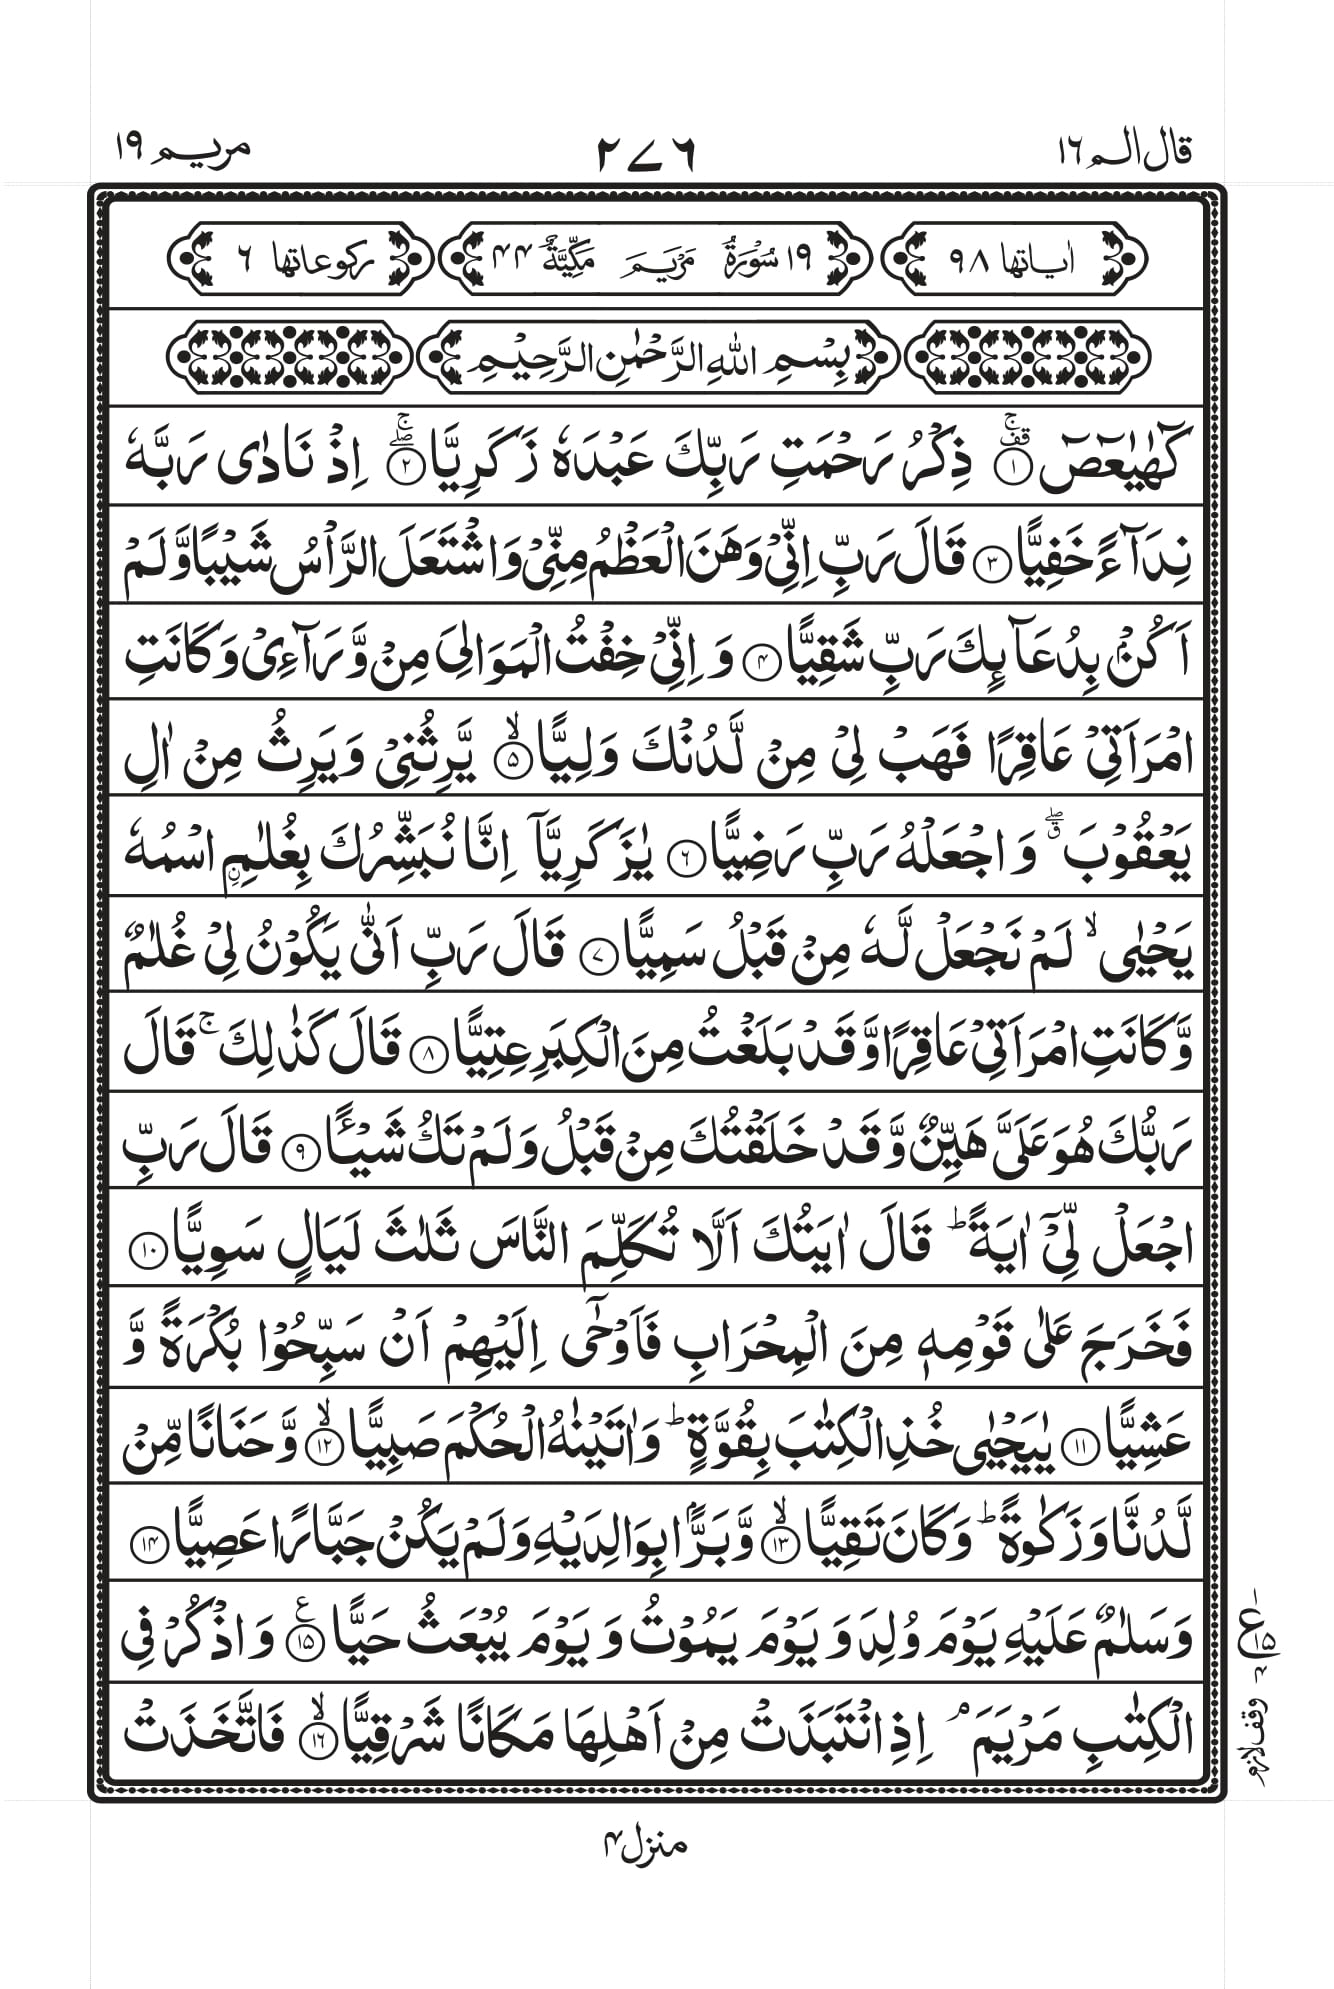 قال الم ١٦ ٢٧٦ مريم ١٩
اٰياتها ٩٨ ١٩ سُوْرَةُ مَرْيَمَ مَكِّيَّةٌ ٤٤ ركوعاتها ٦
بِسْمِ اللّٰهِ الرَّحْمٰنِ الرَّحِيْمِ
كٓهٰيٰعٓصٓ ۚ ۝١ ذِكْرُ رَحْمَتِ رَبِّكَ عَبْدَهٗ زَكَرِيَّا ۖۚ ۝٢ اِذْ نَادٰى رَبَّهٗ
نِدَآءً خَفِيًّا ۝٣ قَالَ رَبِّ اِنِّيْ وَهَنَ الْعَظْمُ مِنِّيْ وَاشْتَعَلَ الرَّاْسُ شَيْبًا وَّلَمْ
اَكُنْۢ بِدُعَآئِكَ رَبِّ شَقِيًّا ۝٤ وَ اِنِّيْ خِفْتُ الْمَوَالِيَ مِنْ وَّرَآءِيْ وَكَانَتِ
امْرَاَتِيْ عَاقِرًا فَهَبْ لِيْ مِنْ لَّدُنْكَ وَلِيًّا ۙ ۝٥ يَّرِثُنِيْ وَيَرِثُ مِنْ اٰلِ
يَعْقُوْبَ ۖق وَاجْعَلْهُ رَبِّ رَضِيًّا ۝٦ يٰزَكَرِيَّآ اِنَّا نُبَشِّرُكَ بِغُلٰمِ ِۨاسْمُهٗ
يَحْيٰى ۙ لَمْ نَجْعَلْ لَّهٗ مِنْ قَبْلُ سَمِيًّا ۝٧ قَالَ رَبِّ اَنّٰى يَكُوْنُ لِيْ غُلٰمٌ
وَّكَانَتِ امْرَاَتِيْ عَاقِرًا وَّقَدْ بَلَغْتُ مِنَ الْكِبَرِ عِتِيًّا ۝٨ قَالَ كَذٰلِكَ ۚ قَالَ
رَبُّكَ هُوَ عَلَيَّ هَيِّنٌ وَّقَدْ خَلَقْتُكَ مِنْ قَبْلُ وَلَمْ تَكُ شَيْـًٔا ۝٩ قَالَ رَبِّ
اجْعَلْ لِّيْٓ اٰيَةً ؕ قَالَ اٰيَتُكَ اَلَّا تُكَلِّمَ النَّاسَ ثَلٰثَ لَيَالٍ سَوِيًّا ۝١٠
فَخَرَجَ عَلٰى قَوْمِهٖ مِنَ الْمِحْرَابِ فَاَوْحٰٓى اِلَيْهِمْ اَنْ سَبِّحُوْا بُكْرَةً وَّ
عَشِيًّا ۝١١ يٰيَحْيٰى خُذِ الْكِتٰبَ بِقُوَّةٍ ؕ وَاٰتَيْنٰهُ الْحُكْمَ صَبِيًّا ۙ ۝١٢ وَّحَنَانًا مِّنْ
لَّدُنَّا وَزَكٰوةً ؕ وَكَانَ تَقِيًّا ۙ ۝١٣ وَّبَرًّۢا بِوَالِدَيْهِ وَلَمْ يَكُنْ جَبَّارًا عَصِيًّا ۝١٤
وَسَلٰمٌ عَلَيْهِ يَوْمَ وُلِدَ وَيَوْمَ يَمُوْتُ وَيَوْمَ يُبْعَثُ حَيًّا ۧ ۝١٥ وَاذْكُرْ فِي
الْكِتٰبِ مَرْيَمَ ۘ اِذِ انْتَبَذَتْ مِنْ اَهْلِهَا مَكَانًا شَرْقِيًّا ۙ ۝١٦ فَاتَّخَذَتْ
ع ١٥ ٤
وقف لازم
منزل ٤